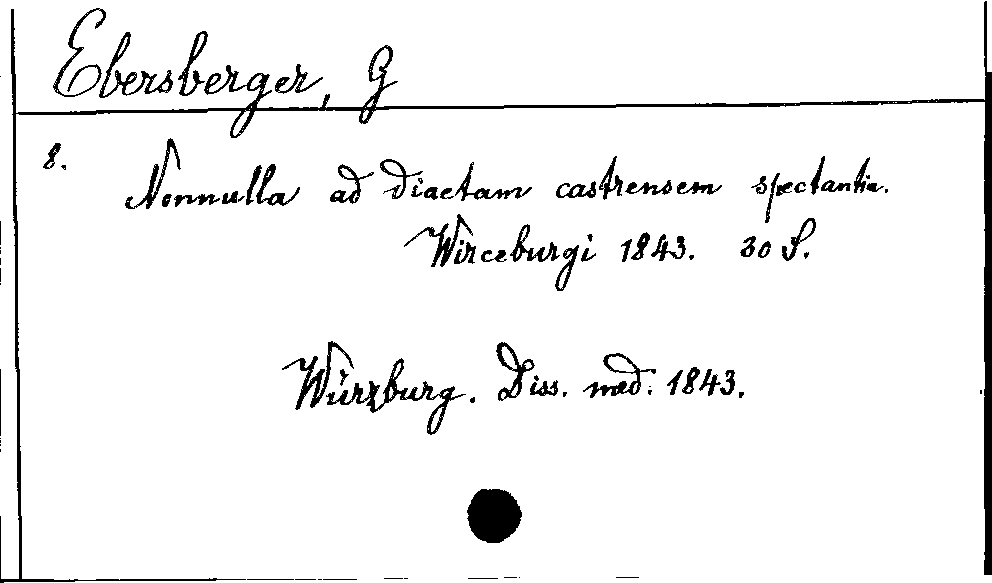 Ebersberger, G
8.
Nonnulla ad diaetam castrensem spectantia.
Wirceburgi 1843. 30 S.
Würzburg. Diss. med. 1843.